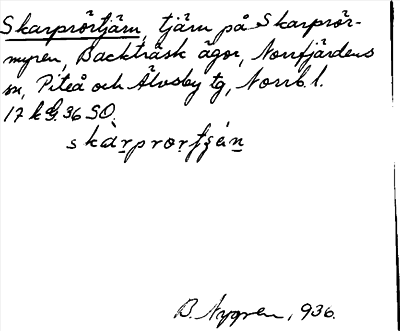 Skarprörtjärn, tjärn på Skarprör-
myren, Backträsk ägor, Norrfjärdens
sn, Piteå och Älvsby tg, Norrb. l.
17 k G. 36 SO.
skàrprortʃén
B. Nygren, 936.